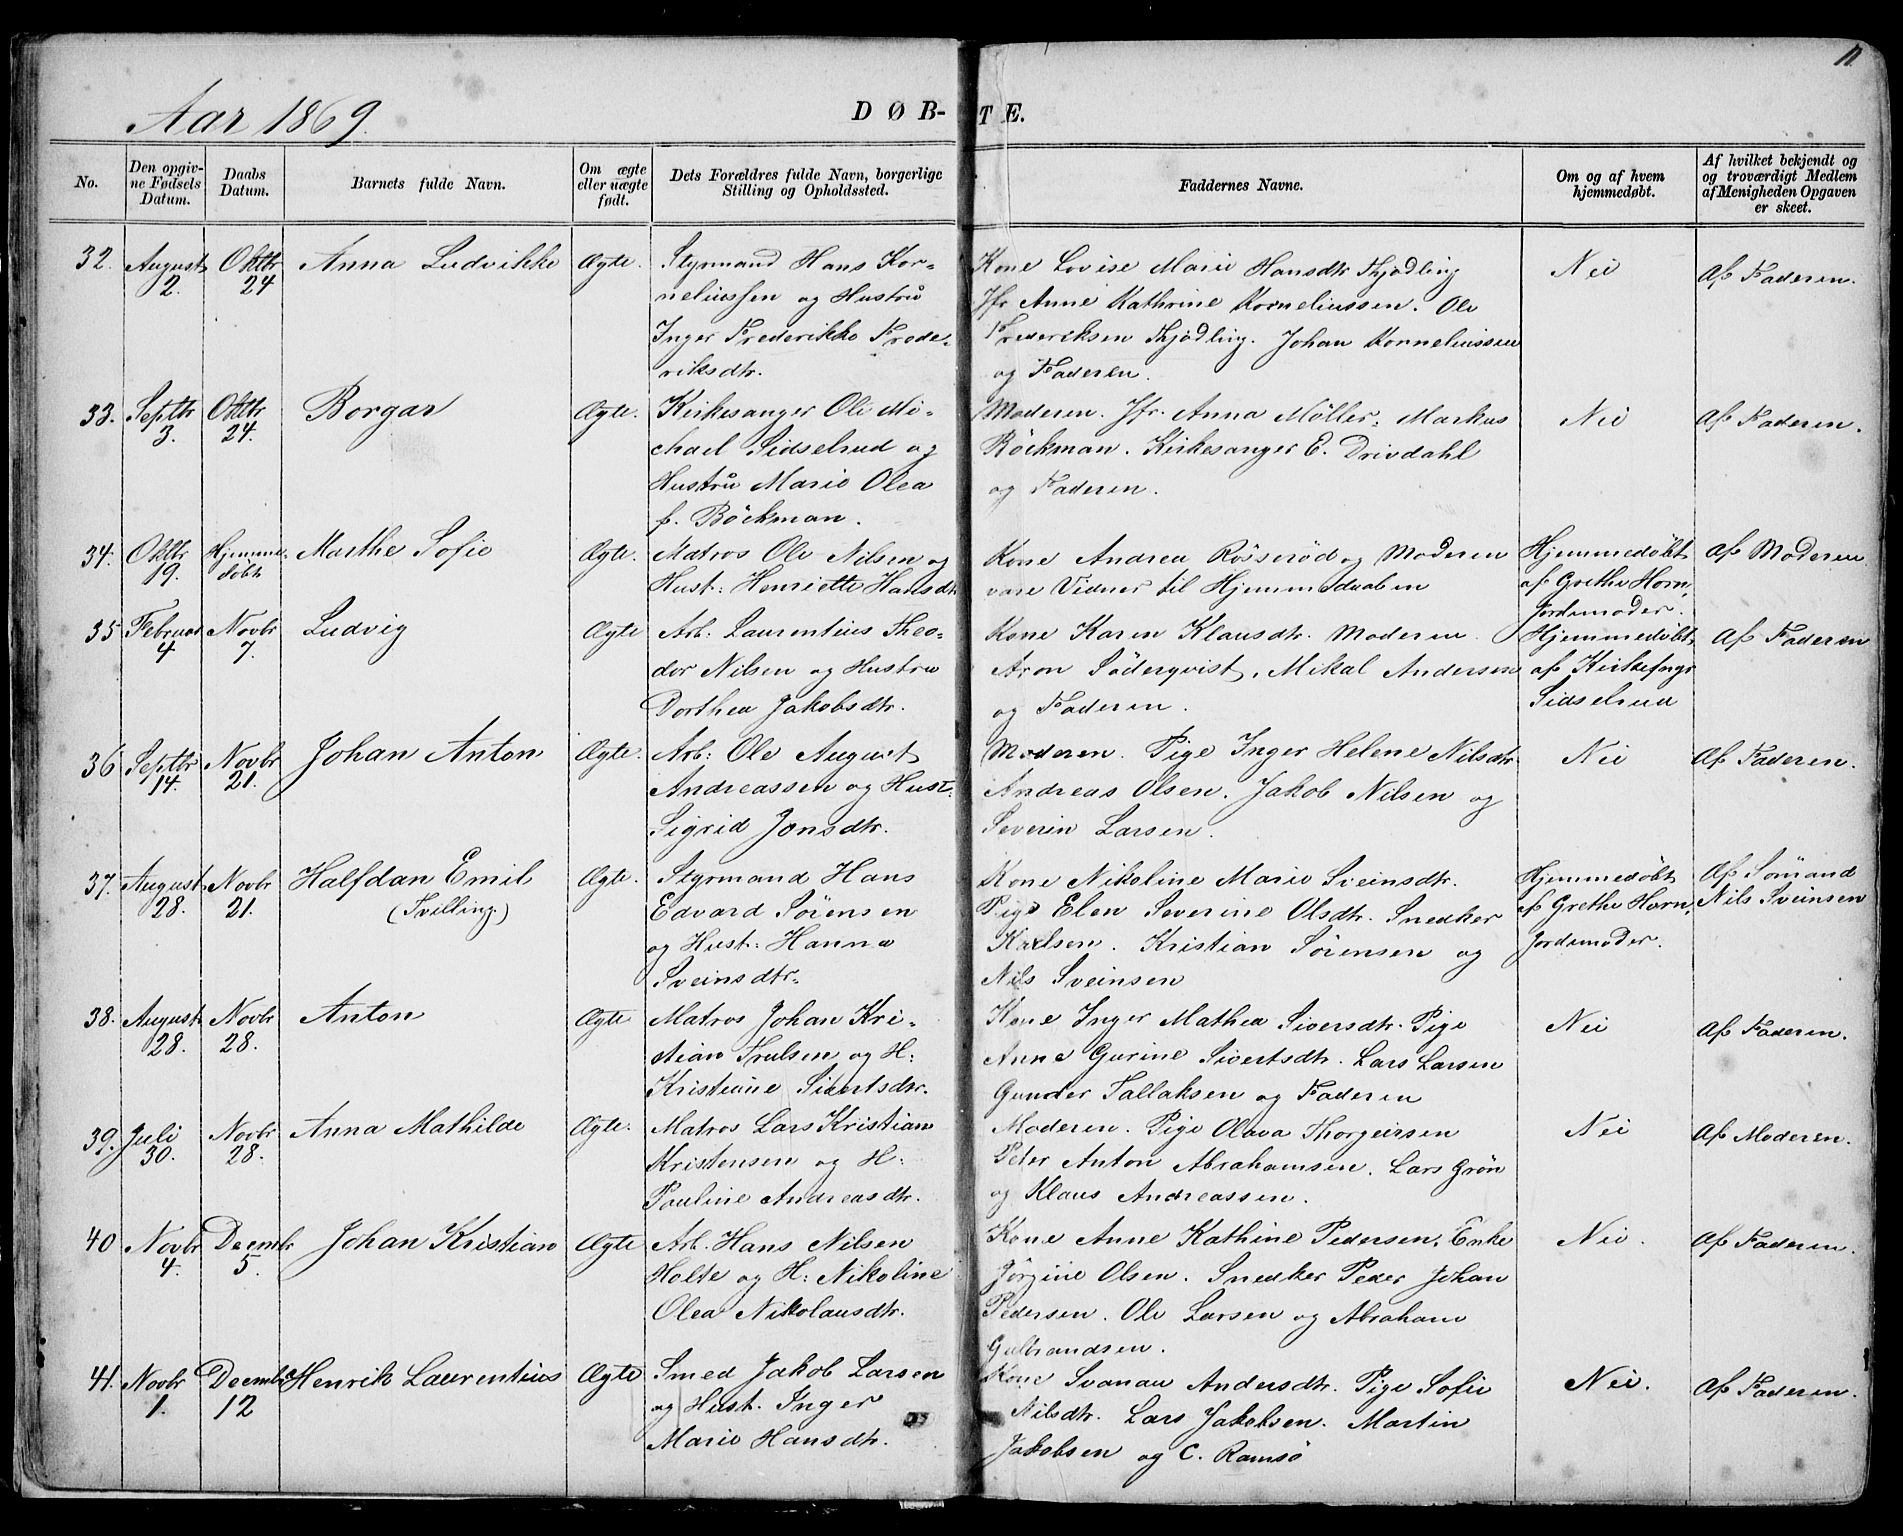 11
Aar 1869.
DØB-TE.
No.
Den opgiv-
ne Fødsels
Datum.
Daabs
Datum.
Barnets fulde Navn.
Om ægte
eller uægte
født.
Dets Forældres fulde Navn, borgerlige
Stilling og Opholdssted.
Faddernes Navne.
Om og af hvem
hjemmedøbt.
Af hvilket bekjendt og
og troværdigt Medlem
af Menigheden Opgaven
er skeet.
32. August 2. Oktbr 24 Anna Ludvikke Ægte.
Styrmand Hans Kor-
neliussen og Hustru
Inger Frederikke Frede-
riksdtr.
Kone Lovise Marie Hansdtr Thjødling
Jfr Anne Kathrine Korneliussen. Ole
Frederiksen Thjødling. Johan Korneliussen
og Faderen.
Nei
Af Faderen.
33. Septbr 3. Oktbr 24. Borgar Ægte.
Kirkesanger Ole Mi-
chael Sidselrud og
Hustru Marie Olea
f. Böckman.
Moderen. Jfr. Anna Møller. Markus
Böckman. Kirkesanger E. Drivdahl
og Faderen.
Nei
Af Faderen.
34. Oktbr 19. Hjemme-
døbt Marthe Sofie Ægte.
Matros Ole Nilsen og
Hust: Henriette Hansdtr
Kone Andrea Rösseröd og Moderen
vare Vidner til Hjemmedaaben
Hjemmedøbt
af Grethe Horn,
Jordemoder.
Af Moderen
35 Februar 4 Novbr 7. Ludvig Ægte
Arb. Laurentius Theo-
dor Nilsen og Hustru
Dorthea Jakobsdtr.
Kone Karen Klausdtr. Moderen.
Aron Söderqvist. Mikal Andersen
og Faderen.
Hjemmedøbt
af Kirkesngr
Sidselrud
Af Faderen
36 Septbr 14. Novbr 21. Johan Anton Ægte.
Arb: Ole August
Andreassen og Hust:
Sigrid Jonsdtr.
Moderen. Pige Inger Helene Nilsdtr
Andreas Olsen. Jakob Nilsen og
Severin Larsen.
Nei
Af Faderen.
37. August 28. Novbr 21. Halfdan Emil
(Tvilling.) Ægte.
Styrmand Hans
Edvard Sörensen
og Hust: Hanna
Sveinsdtr.
Kone Nikoline Marie Sveinsdtr.
Pige Elen Severine Olsdtr. Snedker
Karlsen. Kristian Sörensen og
Nils Sveinsen
Hjemmedøbt
af Grethe Horn,
Jordemoder.
Af Sømand
Nils Sveinsen
38. August 28. Novbr 28. Anton Ægte
Matros Johan Kri-
stian Trulsen og H:
Kristiane Sivertsdtr.
Kone Inger Mathea Siversdtr. Pige
Anne Gurine Sivertsdtr. Lars Larsen
Gunder Tallaksen og Faderen
Nei
Af Faderen.
39. Juli 30. Novbr 28. Anna Mathilde Ægte.
Matros Lars Kristian
Kristensen og H:
Pauline Andreasdtr.
Moderen. Pige Olava Thorgeirsen
Peter Anton Abrahamsen. Lars Grön
og Klaus Andreassen.
Nei
Af Moderen.
40 Novbr 4. Decmbr 5. Johan Kristian Ægte
Arb. Hans Nilsen
Holte og H: Nikoline
Olea Nikolausdtr.
Kone Anne Kathine Pedersen. Enke
Jörgine Olsen. Snedker Peder Johan
Pedersen. Ole Larsen og Abraham
Gulbrandsen.
Nei.
Af Faderen.
41. Novbr 1. Decmbr 12 Henrik Laurentius Ægte
Smed Jakob Larsen
og Hust. Inger
Marie Hansdtr.
Kone Svanau Andersdtr. Pige Sofie
Nilsdtr. Lars Jakobsen. Martin
Jakobsen og C. Ramsø
Nei.
Af Faderen.